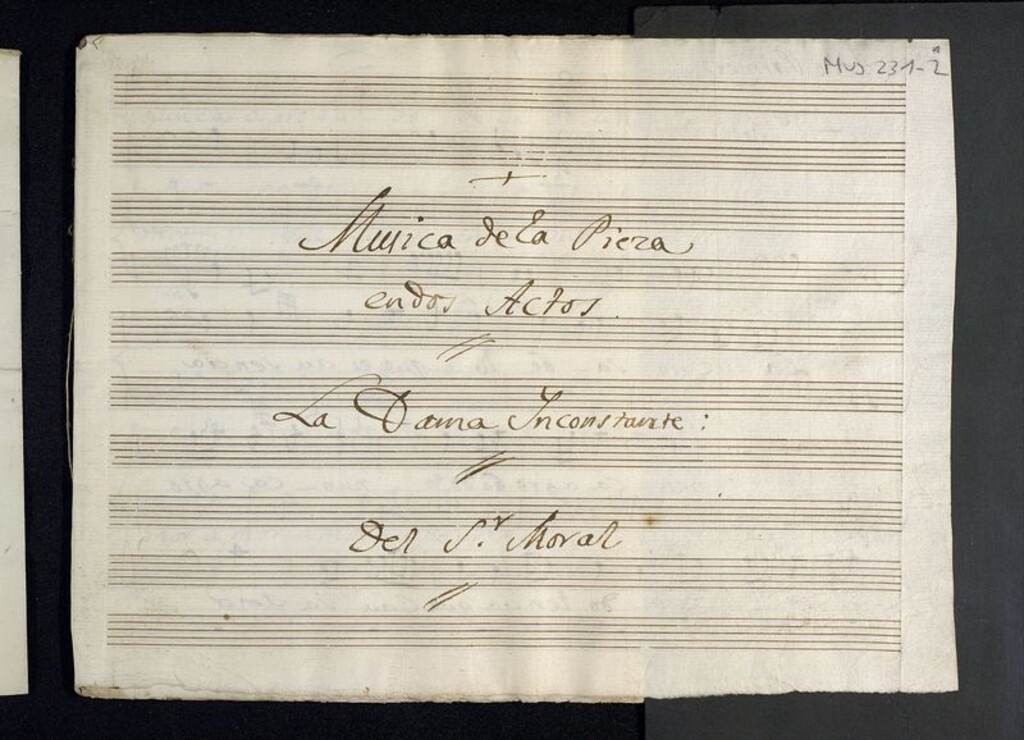 Mus 231-2
Musica de la Pieza
en dos Actos.
La Dama Inconstante:
Del S.r Moral